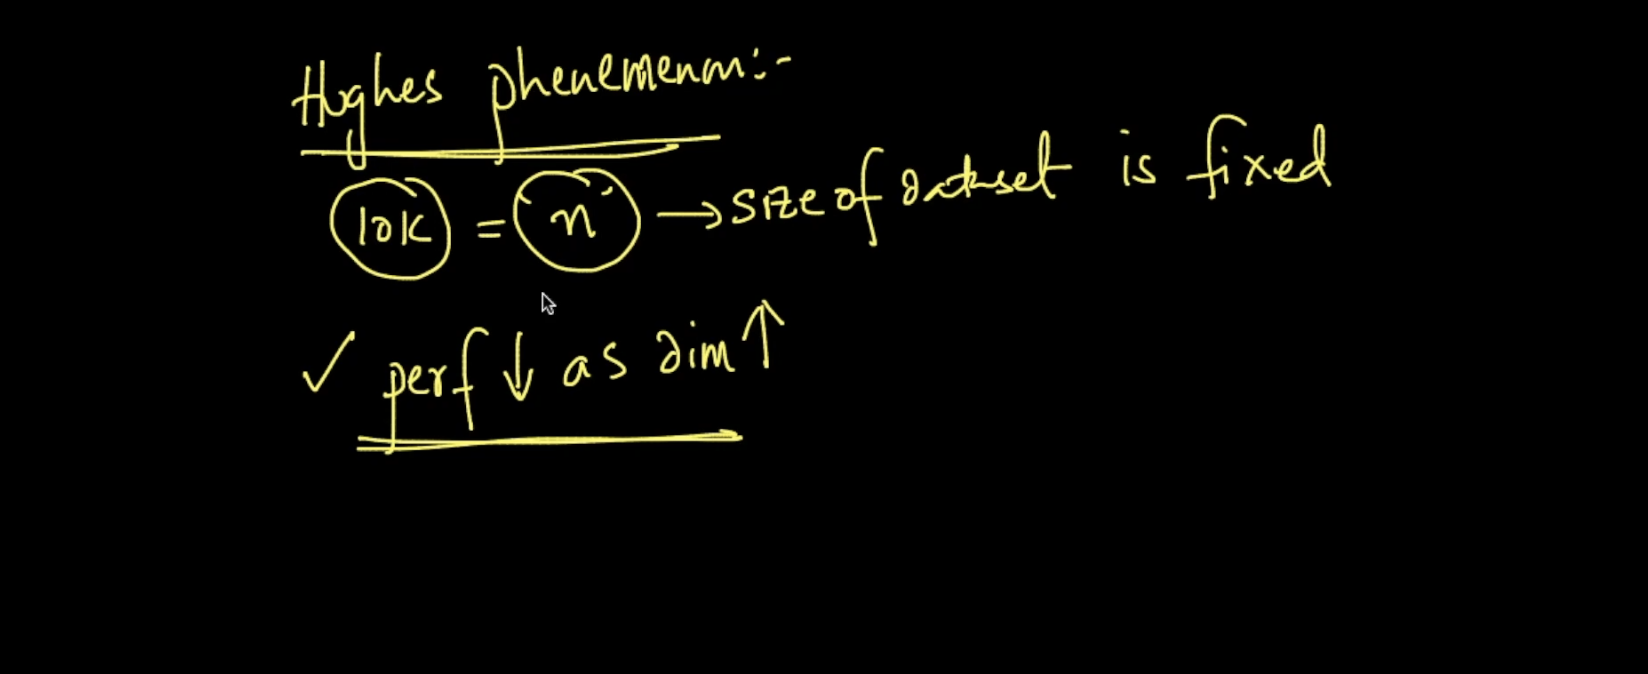 Hughes phenemenm:-
10K = n → size of dataset is fixed
✓ perf ↓ as dim ↑